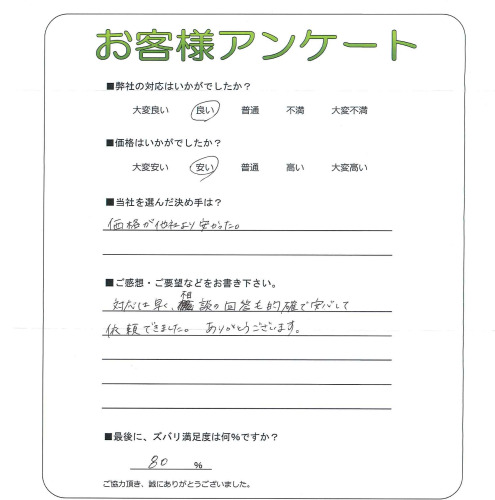 お客様アンケート
■弊社の対応はいかがでしたか？
大変良い 良い 普通 不満 大変不満
■価格はいかがでしたか？
大変安い 安い 普通 高い 大変高い
■当社を選んだ決め手は？
価格が他社より安かった。
■ご感想・ご要望などをお書き下さい。
対応は早く、相談の回答も的確で安心して
依頼できました。 ありがとうございます。
■最後に、ズバリ満足度は何%ですか？
80 %
ご協力頂き、誠にありがとうございました。